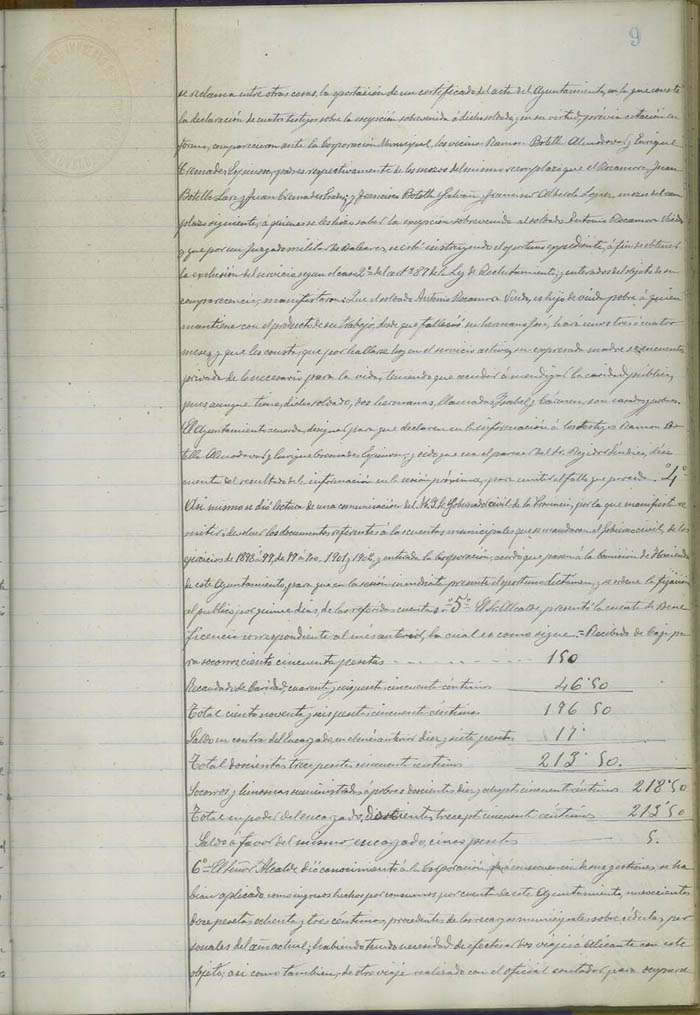 9
se reclama entre otras cosas, la aportación de un certificado del acta del Ayuntamiento, en la que conste
la declaración de cuatro testigos sobre la excepción sobrevenida á dicho soldado, y en su virtud, previa citación en
forma, comparecieron ante la Corporación Municipal, los vecinos Ramon Botella Almodovar y Enrique
Cremades Espinosa, padres respectivamente de los mozos del mismo reemplazo que el Rocamora, Juan
Botella Lara y Juan Cremades y Francisco Botella Galvañ y Francisco Alberola Lopez, mozos del
plazo siguiente, á quienes se les hizo saber la excepción sobrevenida al soldado Antonio Rocamora
y que por un Juzgado militar de Baleares, se está instruyendo el oportuno expediente, á fin de obtener
la exclusión del servicio segun el caso 2º del artº 87 de la Ley de Reclutamiento; y enterados del objeto de su
comparecencia, manifestaron: Que el soldado Antonio Rocamora es hijo de viuda pobre á quien
mantiene con el producto de su trabajo, desde que falleció su hermano José, hará unos tres ó cuatro
meses, y que les consta, que por hallarse hoy en el servicio activo, su expresada madre se encuentra
privada de lo necesario para la vida, teniendo que acudir á mendigar la caridad publica,
pues aunque tiene, dicho soldado, dos hermanas, llamadas Isabel y Carmen, son casadas y pobres.
El Ayuntamiento acuerda, designar para que declaren en la información á los testigos Ramon Bo-
tella Almodovar y Enrique Cremades Espinosa, y oido que sea el parecer del Sr. Regidor Síndico, dése
cuenta del resultado de la información en la sesión próxima, para emitir el fallo que procede. = 4º
Asi mismo se dió lectura de una comunicación del M. I. S. Gobernador civil de la Provincia, por la que manifiesta re-
mitir y devolver los documentos referentes á las cuentas municipales que se mandaron al Gobierno civil, de los
ejercicios de 1898 á 99, de 99 á 900, 1901 y 1902, y enterada la Corporación, acordó que pasen á la Comisión de Hacienda
de este Ayuntamiento, para que en la sesión inmediata presente el oportuno dictamen, y se ordene la fijación
al publico por quince dias, de las referidas cuentas. = 5º = El Sr. Alcalde, presentó la cuenta de Bene-
ficencia correspondiente al mes anterior, la cual es como sigue. = Recibido de Caja, pa-
ra socorros, ciento cincuenta pesetas 150
Recaudado de Caridad, cuarenta y seis pesetas cincuenta céntimos 46'50
Total ciento noventa y seis pesetas cincuenta céntimos 196 50
Saldo en contra del Encargado, en el mes anterior diez y siete pesetas 17'
Total doscientas trece pesetas cincuenta céntimos 213'50.
Socorros y limosnas suministradas á pobres doscientas diez y ocho pesetas cincuenta céntimos 218'50
Total en poder del encargado, doscientas trece pesetas cincuenta céntimos 213'50
Saldo á favor del mismo, encargado, cinco pesetas 5.
6º = El Señor Alcalde dió conocimiento á la Corporación, que á consecuencia de sus gestiones, se ha-
bian aplicado como ingresos hechos por consumos por cuenta de este Ayuntamiento, novecientas
doce pesetas ochenta y tres céntimos, procedentes de los recargos municipales sobre cédulas per-
sonales del año actual; habiendo tenido necesidad de efectuar dos viajes á Alicante con este
objeto; asi como tambien, de otro viaje realizado con el oficial contador, para ocuparse